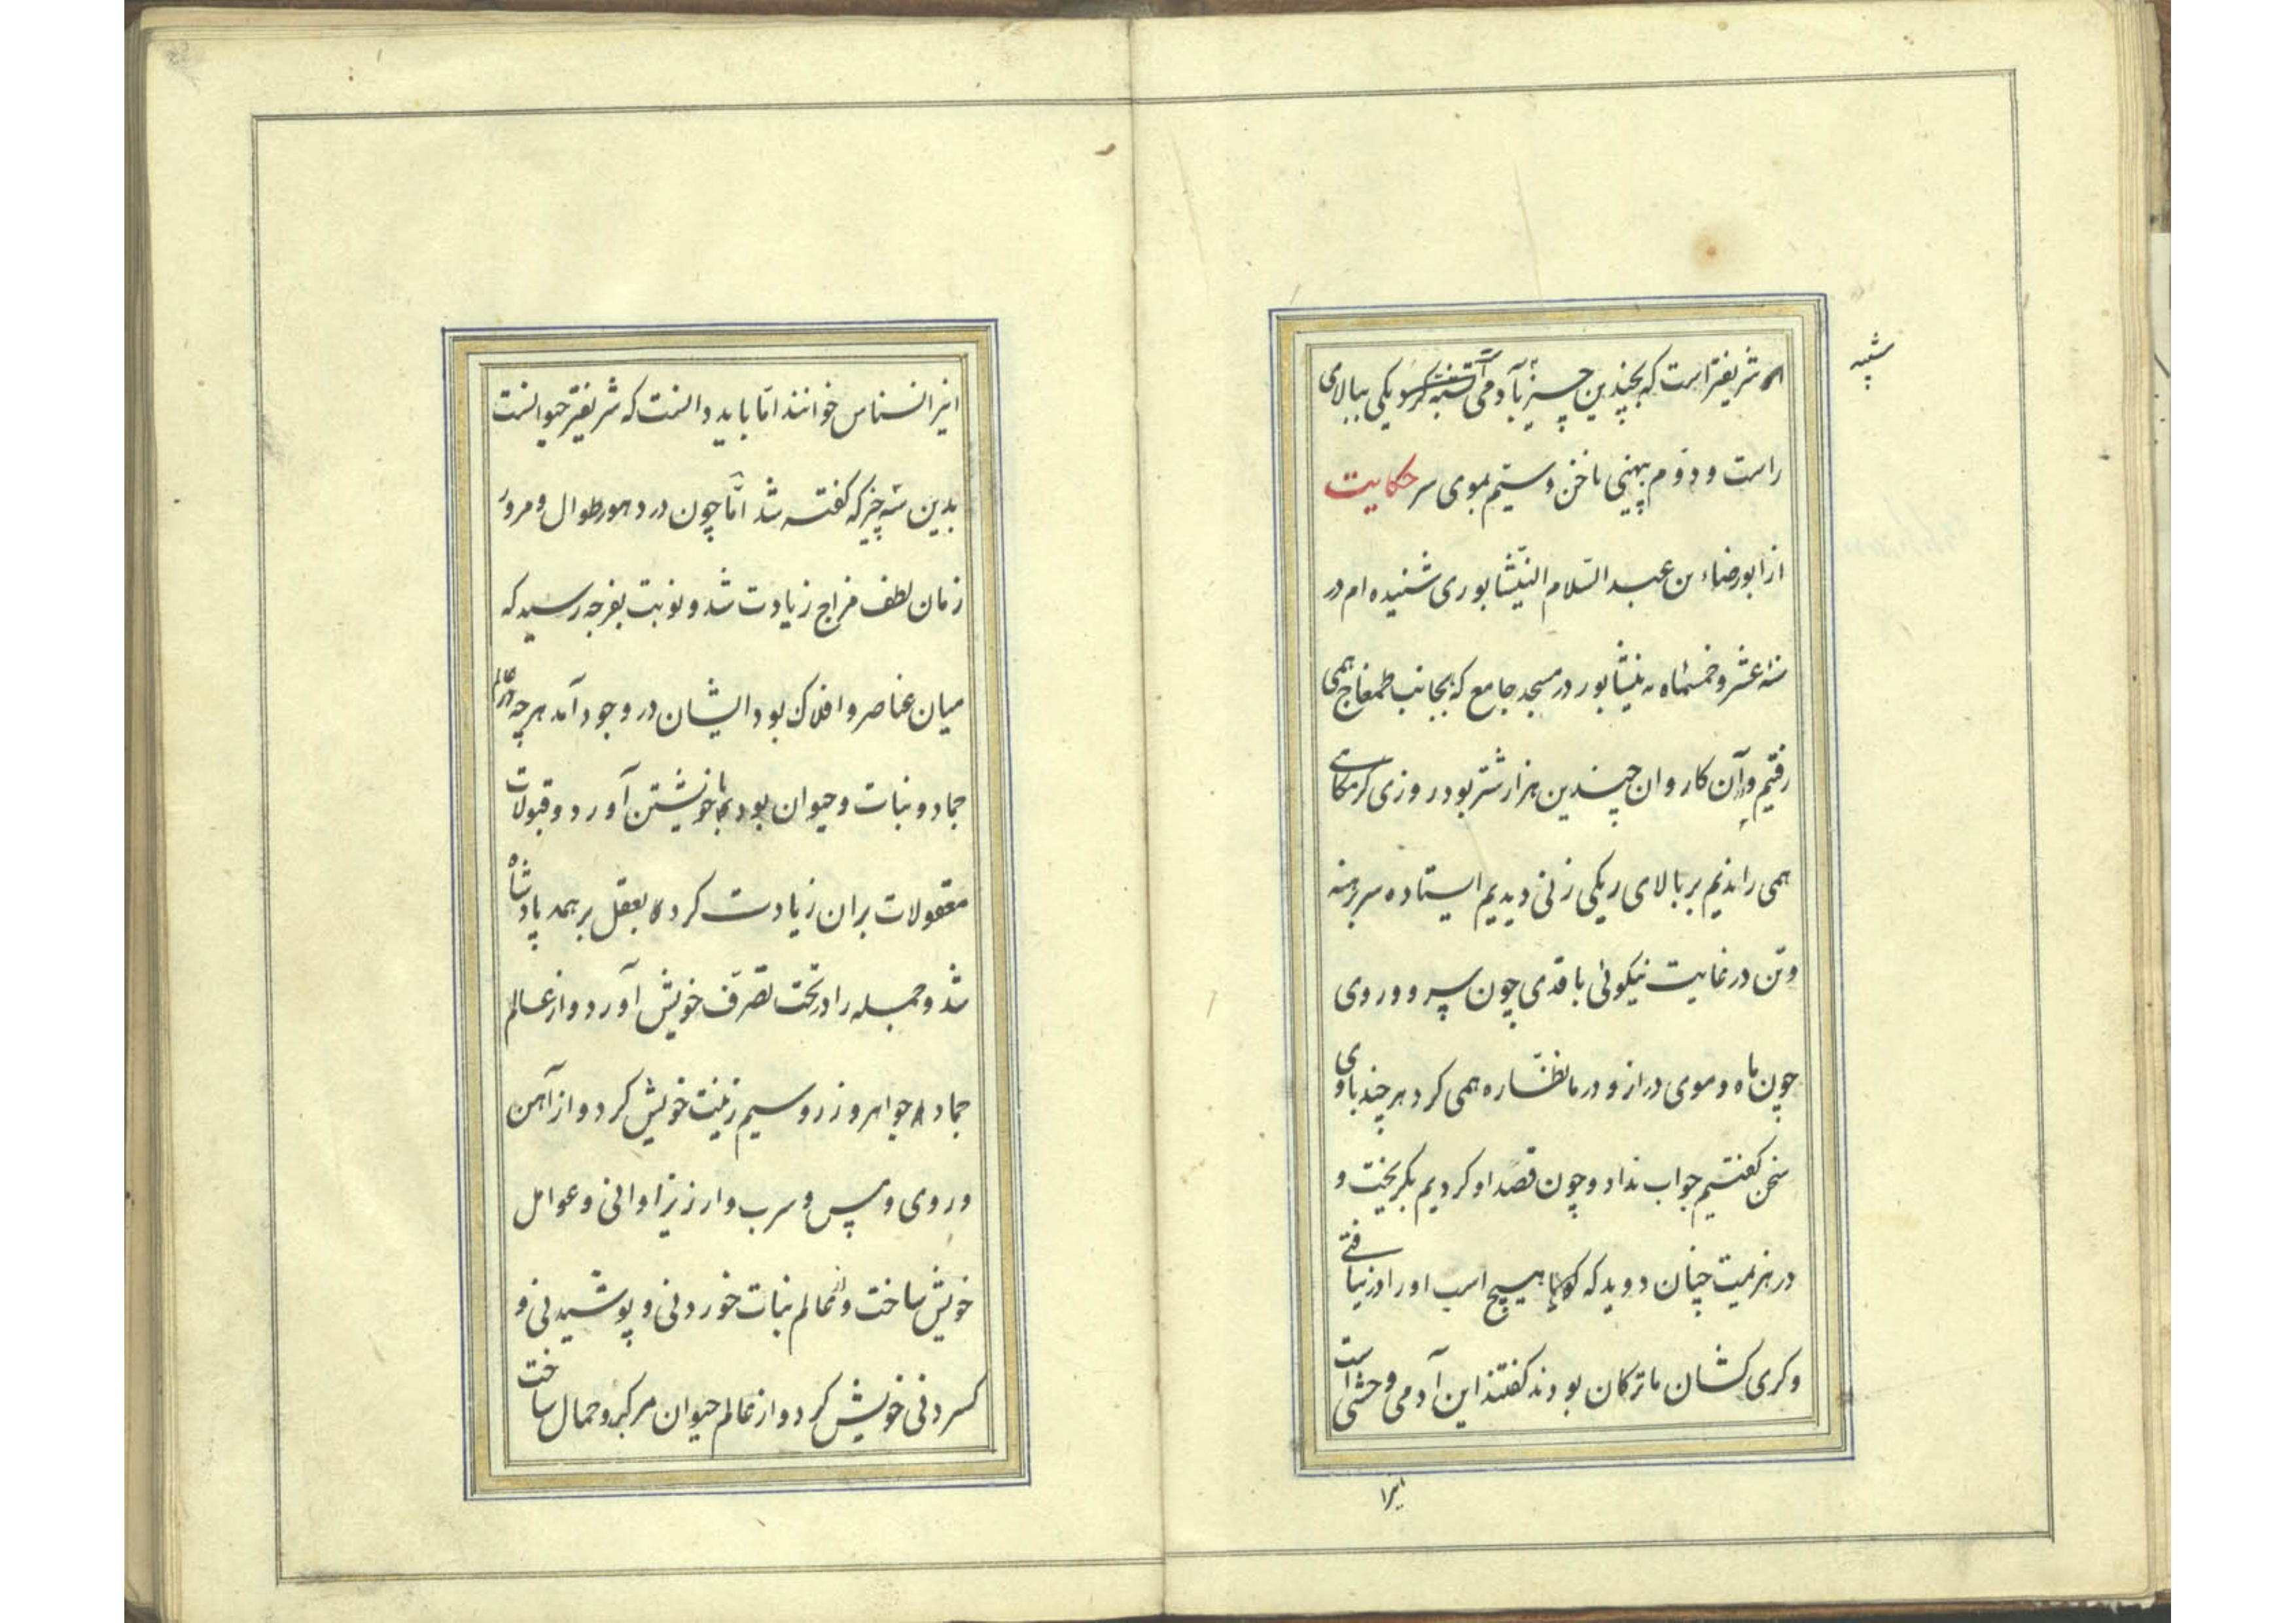 شریفتر است که بچندین چیز بآدمی تشبه کرد یکی ببالای
شبیه
راست و دوم بپهنی ناخن و سیم بموی سر حکایت
از ابورضاء بن عبد السّلام النیّشابوری شنیده ام در
سنه عشر و خمسماه به نیشابور در مسجد جامع که بجانب طمغاج همی
رفتیم و آن کاروان چندین هزار شتر بود روزی کرمکاهی
همی راندیم بر بالای ریکی زنی دیدیم ایستاده سر برهنه
و تن در غایت نیکوئی با قدی چون سرو و روی
چون ماه و موی دراز و در ما نظّاره همی کرد هر چند با وی
سخن کفتیم جواب نداد و چون قصد او کردیم بکریخت و
در هزیمت چنان دوید که کویا هیچ اسب او را در نیافتی
و کری کشان ما ترکان بودند کفتند این آدمی وحشی است
اینرا
اینرا نسناس خوانند امّا باید دانست که شریفتر حیوانست
بدین سه چیز که کفته شد امّا چون در دهور طوال و مرور
زمان لطف مزاج زیادت شد و نوبت بفرجه رسید که
میان عناصر و افلاک بود ایشان در وجود آمد هر چه در عالم
جماد و نبات و حیوان بود با خویشتن آورد و قبولات
معقولات بران زیادت کرد و بعقل بر همه پادشاه
شد و جمله را در تحت تصرّف خویش آورد و از عالم
جماد جواهر و زر و سیم زینت خویش کرد و از آهن
و روی و مس و سرب و ارزیز اوانی و عوامل
خویش ساخت و از عالم نبات خوردنی و پوشیدنی و
کسردنی خویش کرد و از عالم حیوان مرکب و حمال ساخت